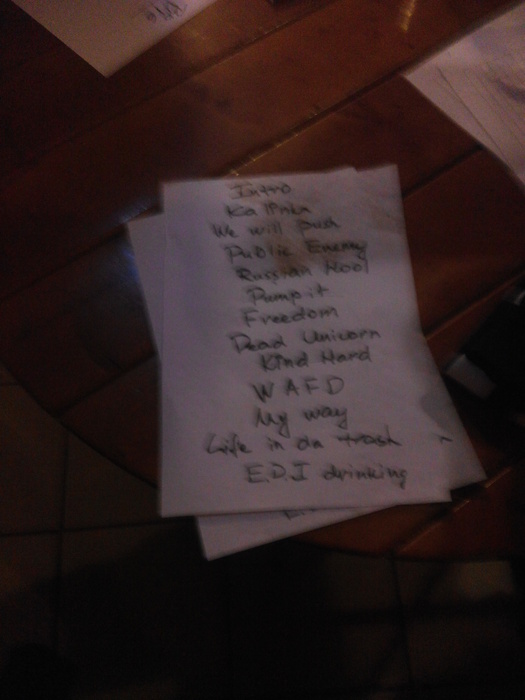 Intro
Kalinka
We will push
Public Enemy
Russian Hool
Pump it
Freedom
Dead Unicorn
Kind Hard
WAFD
My way
Life in da trash
E.D.I drinking